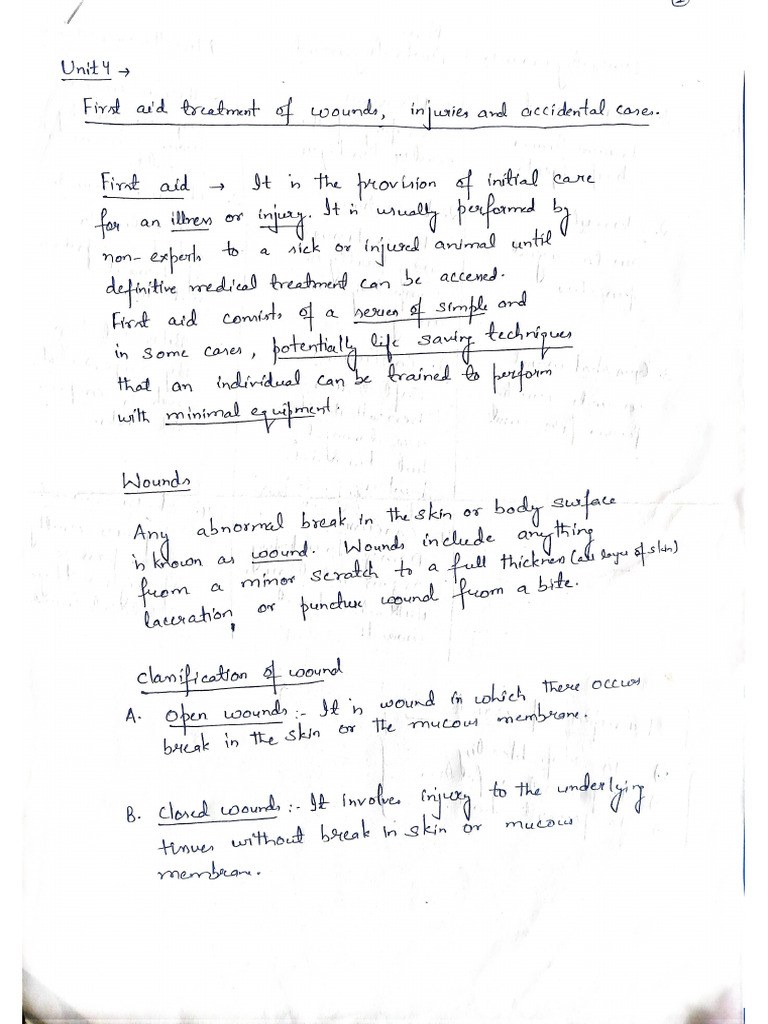 Unit 4 →
First aid treatment of wounds, injuries and accidental cases.
First aid → It is the provision of initial care
for an illness or injury. It is usually performed by
non-experts to a sick or injured animal until
definitive medical treatment can be accessed.
First aid consists of a series of simple and
in some cases, potentially life saving techniques
that an individual can be trained to perform
with minimal equipment.
Wounds
Any abnormal break in the skin or body surface
is known as wound. Wounds include anything
from a minor scratch to a full thickness (all layer of skin)
laceration, or puncture wound from a bite.
Classification of wound
A. Open wounds :- It is wound in which there occurs
break in the skin or the mucous membrane.
B. Closed wounds :- It involves injury to the underlying
tissues without break in skin or mucous
membrane.